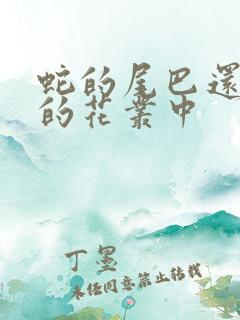 蛇的尾巴還
的花叢中
丁墨
未經同意禁止轉載